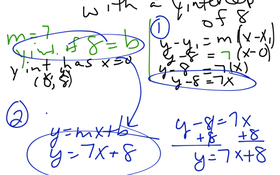 with a y
of 8
m = 7
y int of 8 = b
y int has x=0
(8, 8)
①
y-y₁ = m(x-x₁)
y-8 = 7(x-0)
y-8 = 7(x)
y-8 = 7x
②
y = mx + b
y = 7x + 8
y-8 = 7x
+8 +8
y = 7x+8